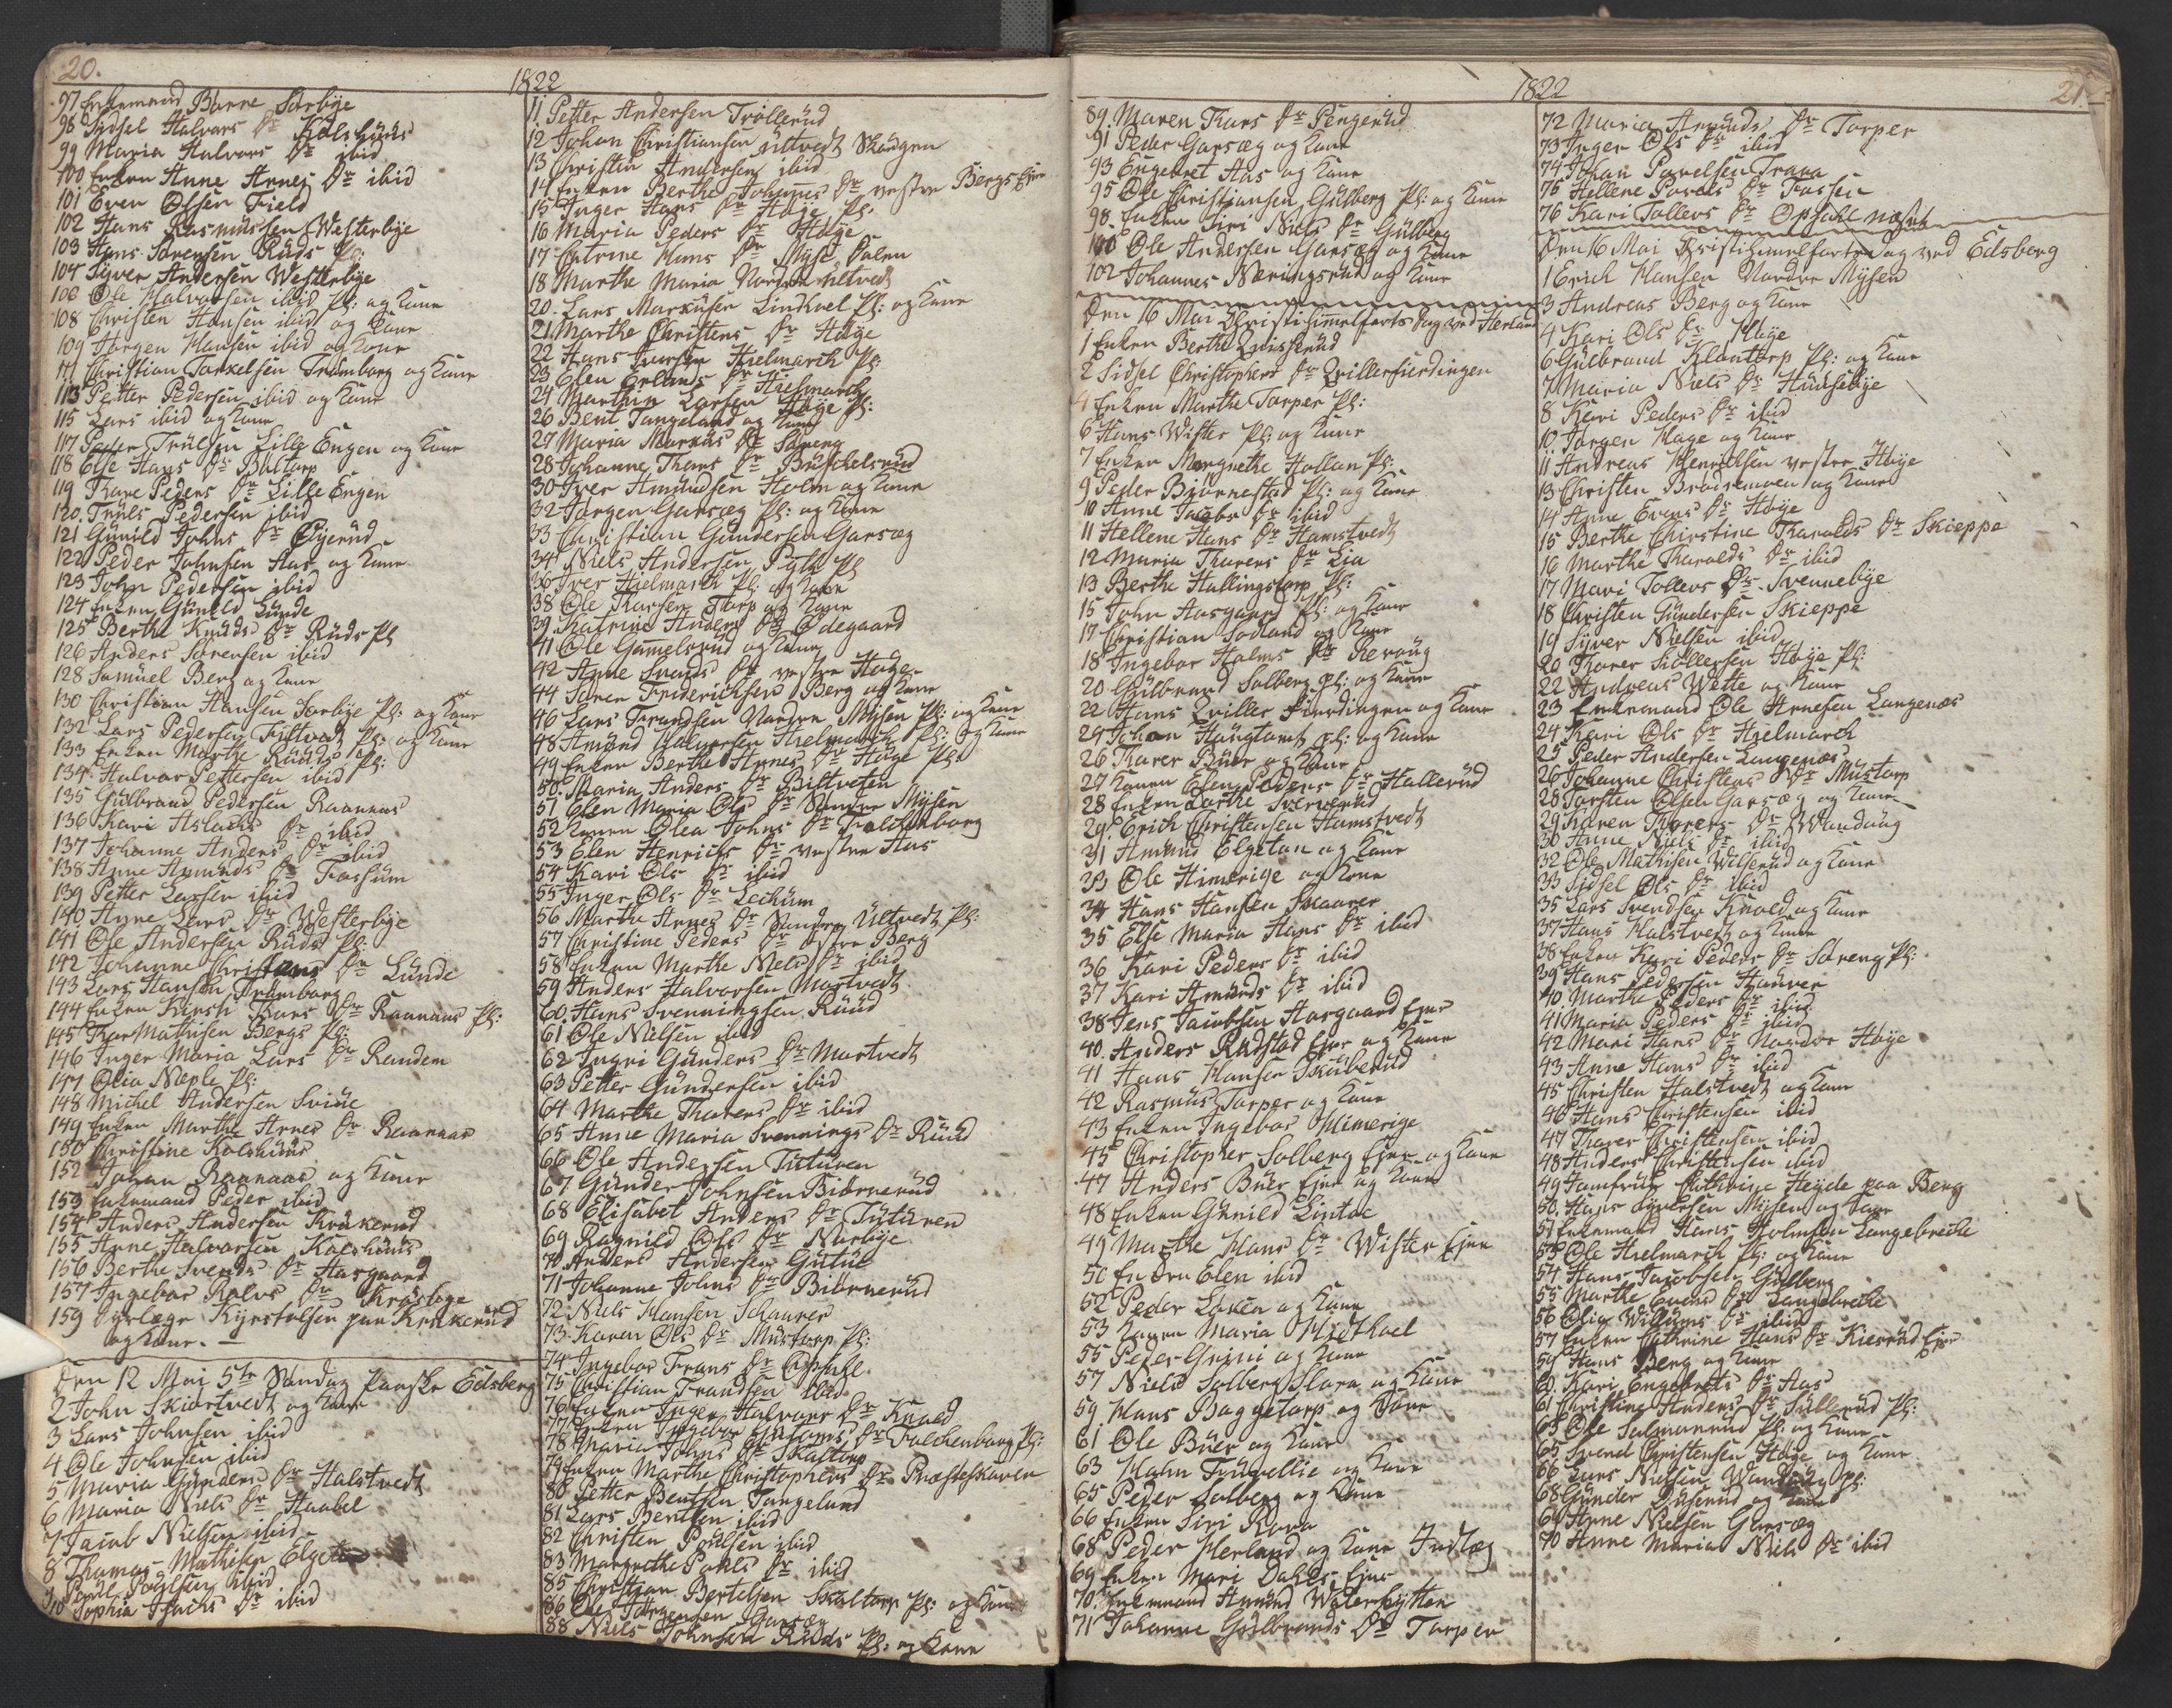 20.
1822
97 Enkemand Børre Sørbÿe
98 Sidsel Halvors Dr Kolshuus
99 Maria Halvors Dr ibid
100 Enken Anne Arnes Dr ibid
101 Even Olsen Field
102 Hans Rasmussen Westerbÿe
103 Hans Sørensen Ruds Pl:
104 Sÿver Andersen Westerbÿe
106 Ole Halvorsen ibid Pl: og Kone
108 Christen Hansen ibid og Kone
109 Jørgen Hansen ibid og Kone
111 Christian Torkelsen Trømborg og Kone
113 Petter Pedersen ibid og Kone
115 Lars ibid og Kone
117 Peder Trulsen Lille Engen og Kone
118 Else Hans Dr Bøltorp
119 Thore Peders Dr Lille Engen
120 Truls Pedersen ibid
121 Gunild Johns Dr Øÿerud
122 Peder Johnsen Aas og Kone
123 John Pedersen ibid
124 Enken Gunild Lunde
125 Berthe Knuds Dr Ruds Pl
126 Anders Sørensen ibid
128 Samuel Berg og Kone
130 Christian Hansen Sørbÿe Pl: og Kone
132 Lars Pedersen Filtvedt Pl: og Kone
133 Enken Marthe Ruuds Pl:
134 Halvor Pettersen ibid
135 Gulbrand Pedersen Raanaas
136 Kari Aslachs Dr ibid
137 Johanne Anders Dr ibid
138 Anne Amunds Dr Fossum
139 Petter Larsen ibid
140 Anne Lars Dr Westerbÿe
141 Ole Andersen Ruds Pl:
142 Johanne Christens Dr Lunde
143 Lars Hansen Trømborg
144 Enken Kirsti Thors Dr Raanaas Pl:
145 Thor Mathisen Bergs Pl:
146 Inger Maria Lars Dr Randem
147 Olia Næple Pl:
148 Michel Andersen Sviue
149 Enken Marthe Arnes Dr Raanaas
150 Christine Kolshuus
152 Johan Raanaas og Kone
153 Enkemand Peder ibid
154 Anders Andersen Krakerud
155 Anne Halvorsen Kolshuus
156 Berthe Svends Dr Aasgaard
157 Ingebor Rolvs Dr Krosbÿe
159 Dÿrlæge Kÿrstolsen paa Krakerud
og Kone. —
Den 12 Mai 5te Søndag Paaske Edsberg
2 John Skiørtvedt og Kone
3 Lars Johnsen ibid
4 Ole Johnsen ibid
5 Maria Gunders Dr Halstvedt
6 Maria Niels Dr Haabel
7 Jacob Nielsen ibid
8 Thomas Mathisen Elgetun
9 Poul Poulsen ibid
10 Sophia Isachs Dr ibid
11 Petter Andersen Trollerud
12 Johan Christiansen Ultvedt Skougen
13 Christin Andersen ibid
14 Enken Berthe Johannes Dr vestre Bergs Eje
15 Inger Hans Dr Høje Pl:
16 Maria Peders Dr Høÿe
17 Catrine Hans Dr Mÿse Palen
18 Marthe Maria Nordre Ultvedt
20 Lars Markusen Lindhoel Pl: og Kone
21 Marthe Christens Dr Høÿe
22 Hans Iversen Hielmarch Pl:
23 Elen Erlands Dr Hielmarch
24 Marthin Larsen Høÿe Pl:
26 Bent Tangeland og Kone
27 Maria Markus Dr Søreng
28 Johanne Thors Dr Buschelsrud
30 Iver Amundsen Holm og Kone
32 Jørgen Garsæg Pl: og Kone
33 Christian Gundersen Garsæg
34 Niels Andersen Pÿth Pl
36 Iver Hielmarch Pl: og Kone
38 Ole Thorsen Torp og Kone
39 Katrine Anders Dr Ødegaard
41 Ole Gamelsrud og Kone
42 Anne Svends Dr vestre Høÿe
44 Søren Friderichsen Berg og Kone
46 Lars Frandsen Nordre Mÿsen Pl: og Kone
48 Amund Halvorsen Hielmarch Pl: og Kone
49 Enken Berthe Arnes Dr Høÿe Pl:
50 Maria Anders Dr Biltveten
51 Elen Maria Ols Dr Søndre Mÿsen
52 Konen Olea Johns Dr Falchenborg
53 Elen Henrichs Dr vestre Aas
54 Kari Ols Dr ibid
55 Inger Ols Dr Lechum
56 Marthe Arnes Dr Søndre Ultvedt Pl:
57 Christine Peders Dr østre Berg
58 Enken Marthe Niels Dr ibid
59 Anders Halvorsen Mortvedt
60 Hans Svenningsen Ruud
61 Ole Nilsen ibid
62 Ingri Gunders Dr Mortvedt
63 Petter Gundersen ibid
64 Marthe Thorers Dr ibid
65 Anne Maria Svennings Dr Ruud
66 Ole Andersen Tituren
67 Gunder Johnsen Biørnerud
68 Elisabet Anders Dr Tÿturen
69 Ragnild Ols Dr Narbÿe
70 Anders Andersen Gutue
71 Johanne Johns Dr Biørnerud
72 Niels Hansen Schaarer
73 Karen Ols Dr Mustorp Pl:
74 Ingebor Frans Dr Opsahl
75 Christian Frandsen ibid
76 Enken Inger Halvors Dr Knold
78 Maria Johns Dr Skaltorp
79 Enken Marthe Christophers Dr Præsteskoven
80 Petter Bentsen Tangeland
81 Lars Bentsen ibid
82 Christen Poulsen ibid
83 Margrethe Pouls Dr ibid
85 Christian Bertelsen Skaltorp Pl: og Kone
86 Ole Jørgensen Garsæg
88 Niels Johnsen Ruds Pl: og Kone
1822
21.
89 Maren Thors Dr Pengerud
91 Peder Garsæg og Kone
93 Engebret Aas og Kone
95 Ole Christiansen Gulberg Pl: og Kone
98 Enken Siri Niels Dr Gulberg
100 Ole Andersen Garsæg og Kone
102 Johannes Næringsrud og Kone
Den 16 Mai Christi himmelfarts Dag ved Herland
1 Enken Berthe Qvisserud
2 Sidsel Christophers Dr Qvillerfierdingen
4 Enken Marthe Torper Pl:
6 Hans Wister Pl: og Kone
7 Enken Margrethe Hollan Pl:
9 Peder Biørnestad Pl: og Kone
10 Anne Jacobs Dr ibid
11 Hellene Hans Dr Hamstvedt
12 Maria Thorers Dr Lia
13 Berthe Hallingstorp Pl:
15 John Aasgaard Pl: og Kone
17 Christian Sodland og Kone
18 Ingebor Holms Dr Revoug
20 Gulbrand Solberg Pl: og Kone
22 Hans Qviller Fierdingen og Kone
24 Johan Haugtomt Pl: og Kone
26 Thorer Buer og Kone
27 Konen Elen Peders Dr Hallerud
28 Enken Dorthe Sververud
29 Erich Christensen Hamstvedt
31 Amund Elgetun og Kone
33 Ole Himerige og Kone
34 Hans Hansen Skaarer
35 Else Maria Hans Dr ibid
36 Kari Peders Dr ibid
37 Kari Amunds Dr ibid
38 Jens Jacobsen Aasgaard Ejer
40 Anders Rudstad Ejer og Kone
41 Hans Hansen Skuberud
42 Rasmus Torper og Kone
43 Enken Ingebor Himerige
45 Christopher Solberg Ejer og Kone
47 Anders Buer Ejer og Kone
48 Enken Gunild Lintoe
49 Marthe Hans Dr Wister Ejer
50 Enken Elen ibid
52 Peder Løken og Kone
53 Konen Maria Midthoel
55 Peder Grini og Kone
57 Niels Solberg Slora og Kone
59 Hans Baggetorp og Kone
61 Ole Buer og Kone
63 Hahn Frugellie og Kone
65 Peder Solberg og Kone
66 Enken Siri Kora
68 Peder Herland og Kone Indlæg
69 Enken Mari Dahls Ejer
70 Enkemand Amund Waterhÿtten
71 Johanne Gulbrands Dr Torper
72 Maria Amunds Dr Torper
73 Inger Ols Dr ibid
74 Johan Povelsen Trana
75 Hellene Povels Dr Fossen
76 Kari Tollevs Dr Opsahl næset
Den 16 Mai Christi himmelfarts dag ved Edsberg
1 Erich Hansen Nordre Mÿsen
3 Andreas Berg og Kone
4 Kari Ols Dr Høÿe
6 Gulbrand Klontorp Pl: og Kone
7 Maria Niels Dr Huusebÿe
8 Kari Peders Dr ibid
10 Jørgen Hage og Kone
11 Andreas Henrichsen vestre Høÿe
13 Christen Brødremoen og Kone
14 Anne Evens Dr Høÿe
15 Berthe Christine Tharalds Dr Skieppe
16 Marthe Tharalds Dr ibid
17 Mari Tollevs Dr Svennebÿe
18 Christen Gundersen Skieppe
19 Sÿver Nielsen ibid
20 Thorer Kollersen Høÿe Pl:
22 Andreas Wette og Kone
23 Enkemand Ole Arnesen Langenæs
24 Kari Ols Dr Hielmarch
25 Peder Andersen Langenæs
26 Johanne Christens Dr Mustorp
28 Torsten Olsen Garsæg og Kone
29 Karen Thorers Dr Wandung
30 Anne Niels Dr ibid
32 Ole Mathisen Wilserud og Kone
33 Sidsel Ols Dr ibid
35 Lars Svendsen Knold og Kone
37 Hans Halstvedt og Kone
38 Enken Kari Peders Dr Søreng Pl:
39 Hans Pedersen Haaver
40 Marthe Peders Dr ibid
41 Maria Peders Dr ibid
42 Mari Hans Dr Nordre Høÿe
43 Anne Hans Dr ibid
45 Christen Halstvedt og Kone
46 Hans Christensen ibid
47 Thorer Christensen ibid
48 Anders Christensen ibid
49 Jomfrue Cathrine Heyde paa Berg
50 Hans Syversen Mÿsen og Kone
51 Enkemand Hans Holmsen Langebreche
53 Ole Hielmarch Pl: og Kone
54 Hans Jacobsen Gulberg
55 Marthe Evens Dr Langebreche
56 Olia Willums Dr ibid
57 Enken Cathrine Hans Dr Kiesrud Eje
59 Hans Berg og Kone
60 Kari Engebrets Dr Aas
61 Christine Anders Dr Sullerud Pl:
63 Ole Salmonrud Pl: og Kone
65 Svend Christensen Høÿe og Kone
66 Lars Nielsen Wandung Pl:
68 Gunder Duserud og Kone
69 Anne Nielsen Garsæg
70 Anne Maria Niels Dr ibid